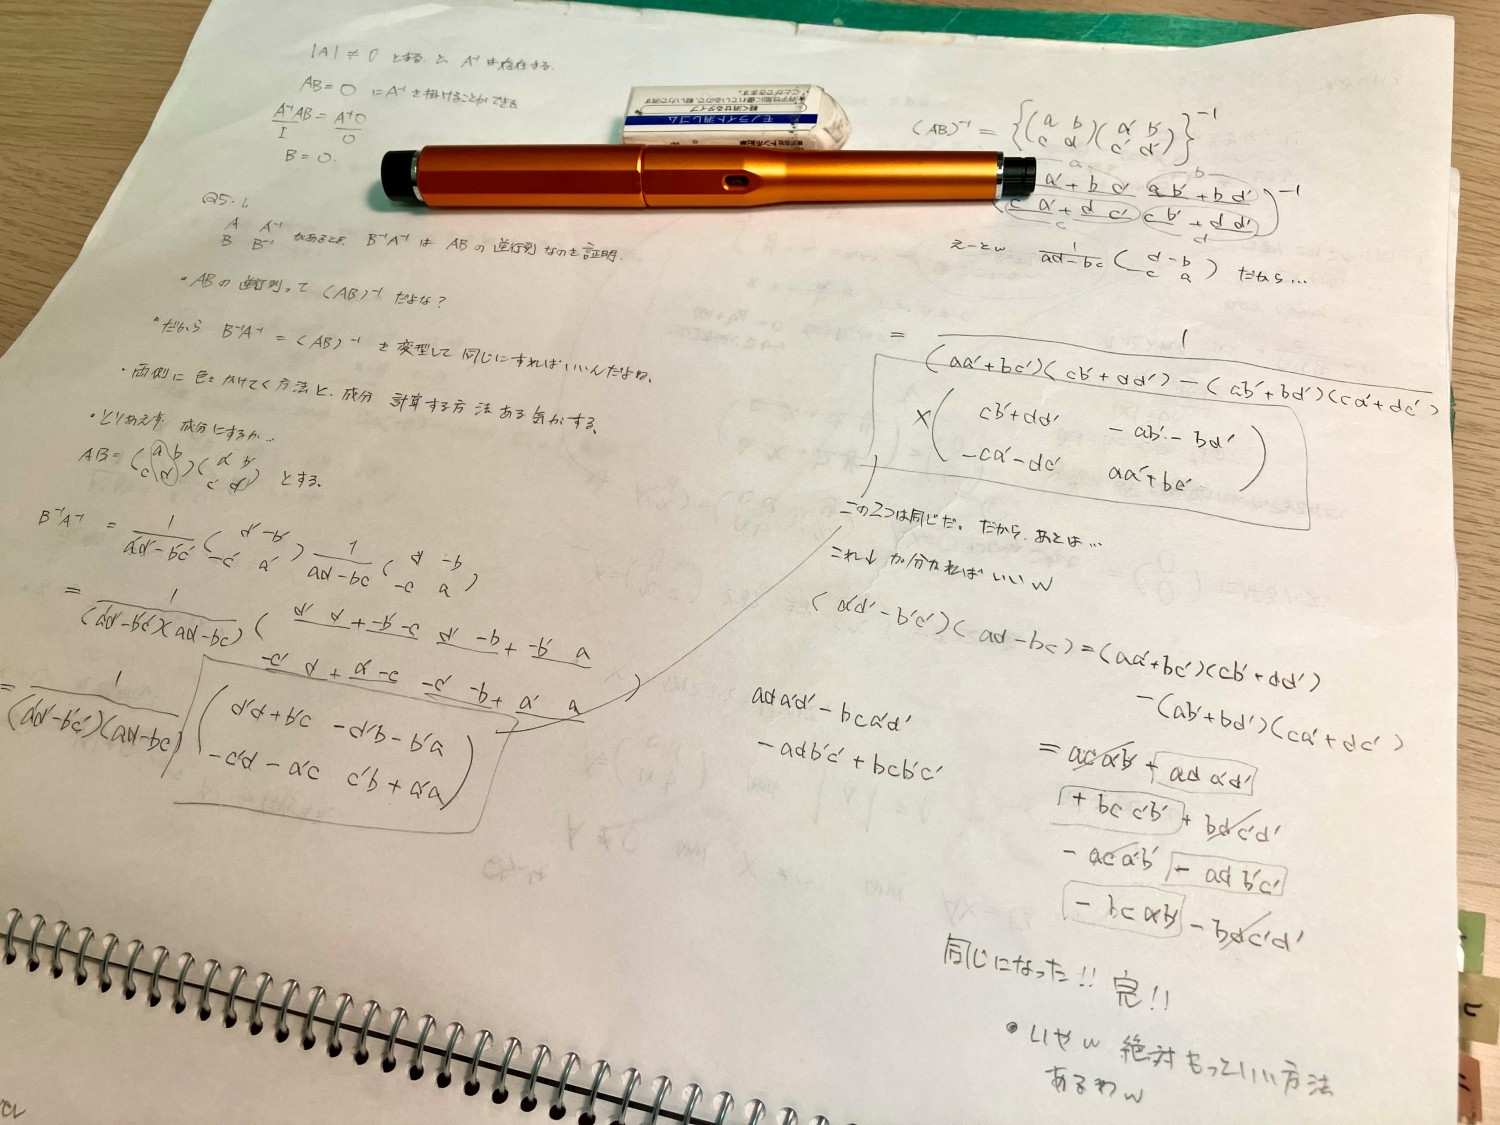 |A| ≠ 0 とすると、A⁻¹は存在する。
AB = O にA⁻¹を掛けることができる
A⁻¹AB = A⁻¹O
I O
B = O.
Q5.1
A A⁻¹
B B⁻¹ があるとき、B⁻¹A⁻¹ は AB の逆行列なのを証明.
・ABの逆行列って (AB)⁻¹ だよな？
・だから B⁻¹A⁻¹ = (AB)⁻¹ を変型して同じにすればいいんだよね、
・両側に色々かけてく方法と、成分計算する方法ある気がする、
・とりあえず 成分にするか…
AB = (a b / c d)(a' b' / c' d') とする、
B⁻¹A⁻¹ = 1/(a'd'-b'c') (d' -b' / -c' a') 1/(ad-bc) (d -b / -c a)
= 1/((a'd'-b'c')(ad-bc)) (d' d + -b' -c d' -b + -b' a
-c' d + a' -c -c' -b + a' a)
= 1/((a'd'-b'c')(ad-bc)) (d'd+b'c -d'b-b'a
-c'd-a'c c'b+a'a)
モノライト消しゴム
軽く消せるタイプ
(AB)⁻¹ = {(a b / c d)(a' b' / c' d')}⁻¹
a b
a'+b c' ab'+bd' )⁻¹
(c a'+d c' cb'+dd'
c d
えーとw 1/(ad-bc) (d -b / -c a) だから…
= 1/((aa'+bc')(cb'+dd')-(ab'+bd')(ca'+dc'))
×(cb'+dd' -ab'-bd'
-ca'-dc' aa'+bc')
この2つは同じだ。だから、あとは…
これ↓が分かればいいw
(a'd'-b'c')(ad-bc)=(aa'+bc')(cb'+dd')
-(ab'+bd')(ca'+dc')
ada'd'-bca'd'
-adb'c'+bcb'c'
= aca'b'+ada'd'
+bcc'b'+bdc'd'
-aca'b'-adb'c'
-bca'd'-bdc'd'
同じになった!! 完!!
・いやw 絶対もっといい方法
あるわw